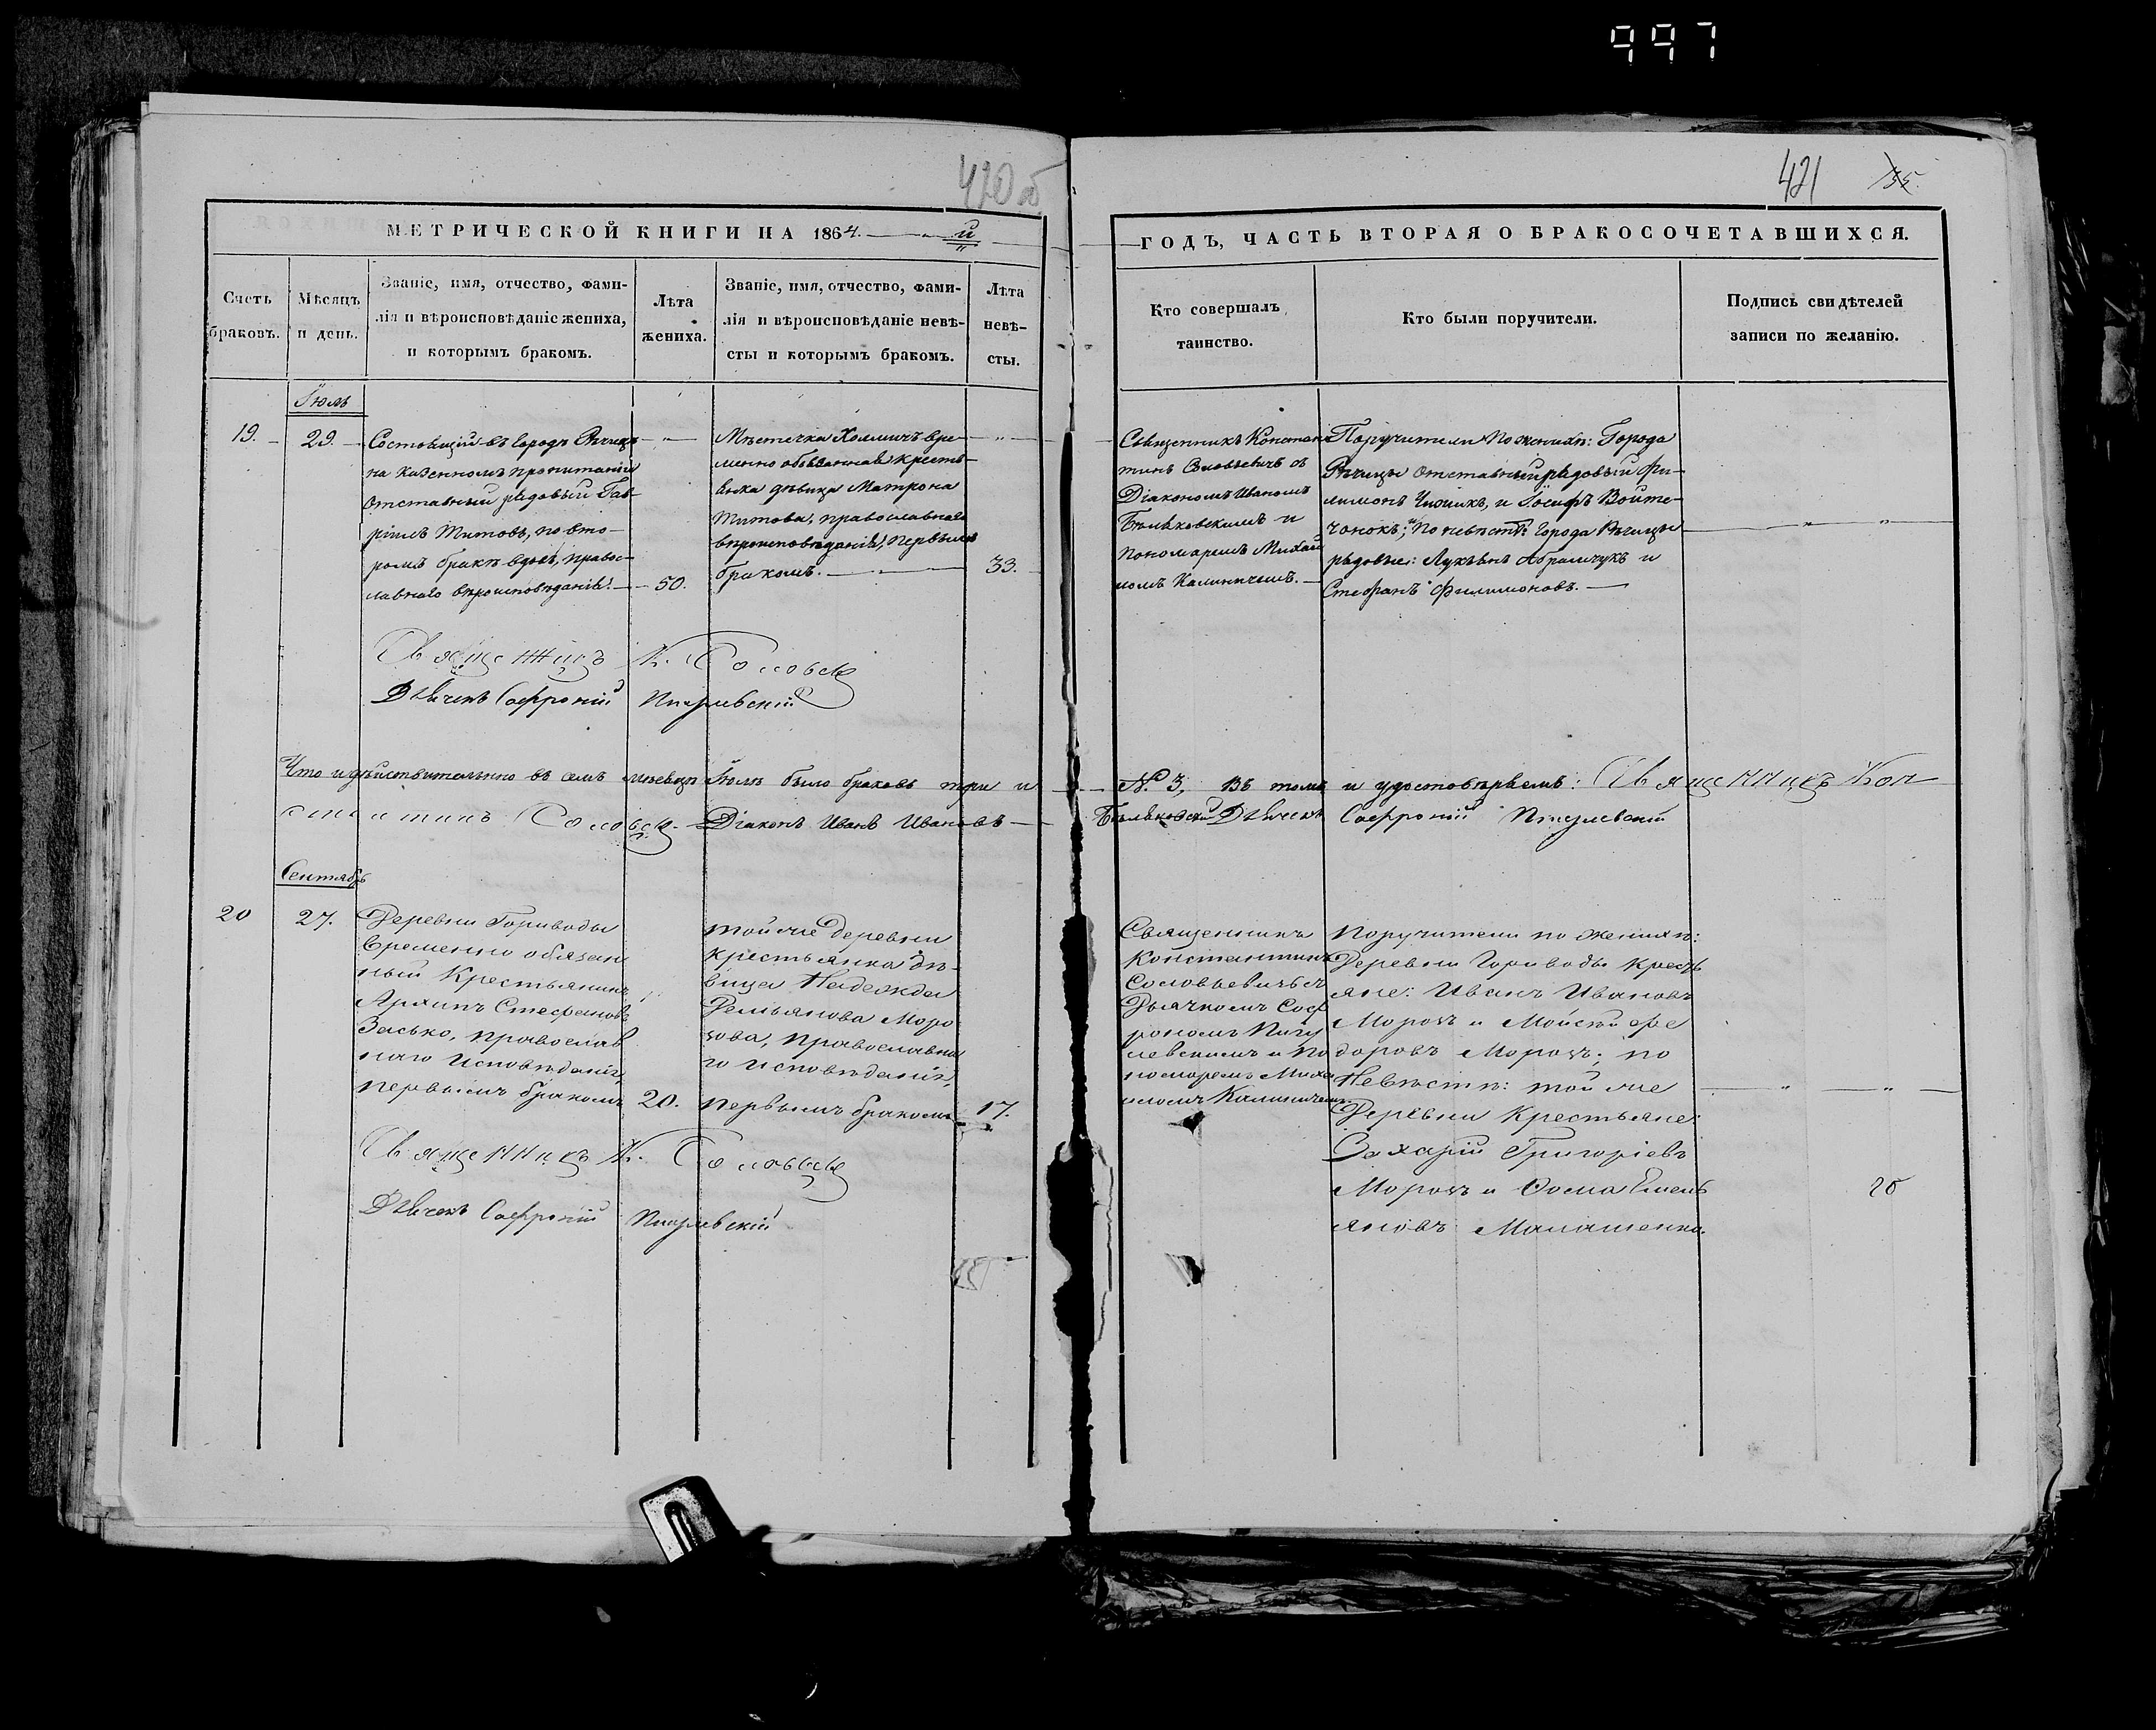 997
420 об
421
МЕТРИЧЕСКОЙ КНИГИ НА 1864. й
ГОДЪ, ЧАСТЬ ВТОРАЯ О БРАКОСОЧЕТАВШИХСЯ.
Счетъ
браковъ.
Мѣсяцъ
и день.
Званіе, имя, отчество, фами-
лія и вѣроисповѣданіе жениха,
и которымъ бракомъ.
Лѣта
жениха.
Званіе, имя, отчество, фами-
лія и вѣроисповѣданіе невѣ-
сты и которымъ бракомъ.
Лѣта
невѣ-
сты.
Кто совершалъ
таинство.
Кто были поручители.
Подпись свидѣтелей
записи по желанію.
Іюль
19.
29.
Состоящій въ городѣ Рѣчицѣ
на казенномъ пропитаніи
отставный рядовый Гав-
ріилъ Титовъ, по вто-
ромъ бракѣ вдовъ, правос-
лавнаго вѣроисповѣданія.
50.
Мѣстечка Холмичъ вре-
менно обязанная кресть-
янка дѣвица Матрона
Титова, православнаго
вѣроисповѣданія, первымъ
бракомъ.
33.
Священникъ Констан-
тинъ Соловьевичъ съ
Діакономъ Иваномъ
Бѣляковскимъ и
Пономаремъ Михаи
ломъ Калиничемъ.
Поручители по женихѣ: Города
Рѣчицы отставный рядовый Фи-
лимонъ и Іосифъ Войте-
чонокъ; по невѣстѣ: Города Рѣчицы
рядовые: Лукьянъ Абрамчукъ и
Стефанъ Филимоновъ.
Священникъ К. Соловьев
Дьячекъ Софроній Пигулевскій
Что и дѣйствительно въ семъ мѣсяцѣ Іюлѣ было браковъ три и № 3, въ томъ и удостовѣряемъ: Священникъ Кон
стантинъ Соловьев Діаконъ Иванъ Ивановъ Бѣляковскій Дьячекъ Софроній Пигулевскій
Сентябрь
20
27.
Деревни Гориводы
временно обязан
ный Крестьянинъ
Архипъ Стефановъ
Засько, православ
наго исповѣданія,
первымъ бракомъ
20.
той же деревни
крестьянка дѣ-
вица Надежда
Демьянова Моро
зова, православна
го исповѣданія,
первымъ бракомъ
17.
Священникъ
Константинъ
Соловьевичъ съ
Дьячкомъ Соф
рономъ Пигу
левскимъ и по
номаремъ Миха
иломъ Калиничемъ.
Поручители по женихѣ:
Деревни Гориводы кресть
яне: Иванъ Ивановъ
Морозъ и Мойсѣй Фе
доровъ Морозъ; по
Невѣстѣ: той же
Деревни Крестьяне:
Захарій Григоріевъ
Морозъ и Ѳома Емель
яновъ Малашенко.
Священникъ К. Соловьев
Дьячекъ Софроній Пигулевскій
20